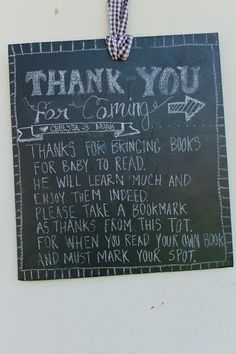 THANK YOU
for Coming
♥ CHELSEA & NOAH
THANKS FOR BRINGING BOOKS
FOR BABY TO READ.
HE WILL LEARN MUCH AND
ENJOY THEM INDEED.
PLEASE TAKE A BOOKMARK
AS THANKS FROM THIS TOT.
FOR WHEN YOU READ YOUR OWN BOOK
AND MUST MARK YOUR SPOT.